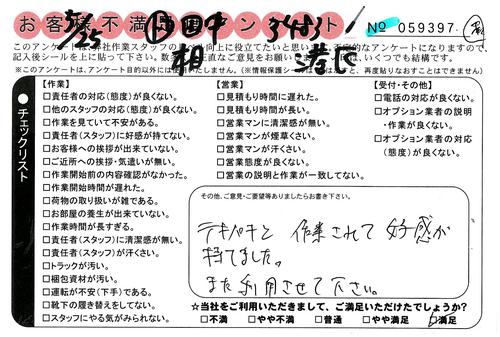 お客様不満
№ 059397
5/25
田中
このアンケートは、弊社作業スタッフの
記入後シールを上に貼って下さい。
いくつでも結構です。
※このアンケートは、アンケート目的以外には使用いたしません。(※情報保護シールは
再度貼りなおすことはできません)
チェックリスト
【作業】
□責任者の対応(態度)が良くない。
□他のスタッフの対応(態度)が良くない。
□作業を見ていて不安がある。
□責任者(スタッフ)に好感が持てない。
□お客様への挨拶が出来ていない。
□ご近所への挨拶・気遣いが無い。
□作業開始前の内容確認がなかった。
□作業開始時間が遅れた。
□荷物の取り扱いが雑である。
□お部屋の養生が出来ていない。
□作業時間が長すぎる。
□責任者(スタッフ)に清潔感が無い。
□責任者(スタッフ)が汗くさい。
□トラックが汚い。
□梱包資材が汚い。
□運転が不安(下手)である。
□靴下の履き替えをしてない。
□スタッフにやる気がみられない。
【営業】
□見積もり時間に遅れた。
□見積もり時間が長い。
□営業マンに清潔感が無い。
□営業マンが煙草くさい。
□営業マンが汗くさい。
□営業態度が良くない。
□営業の説明と作業が一致してない。
【受付・その他】
□電話の対応が良くない。
□オプション業者の説明
・作業が良くない。
□オプション業者の対応
(態度)が良くない。
その他、ご意見・ご要望等ありましたらお書き下さい。
テキパキと 作業されて 好感が
持てました。
また利用させて下さい。
☆当社をご利用いただきまして、ご満足いただけたでしょうか?
□不満 □やや不満 □普通 □やや満足 □満足